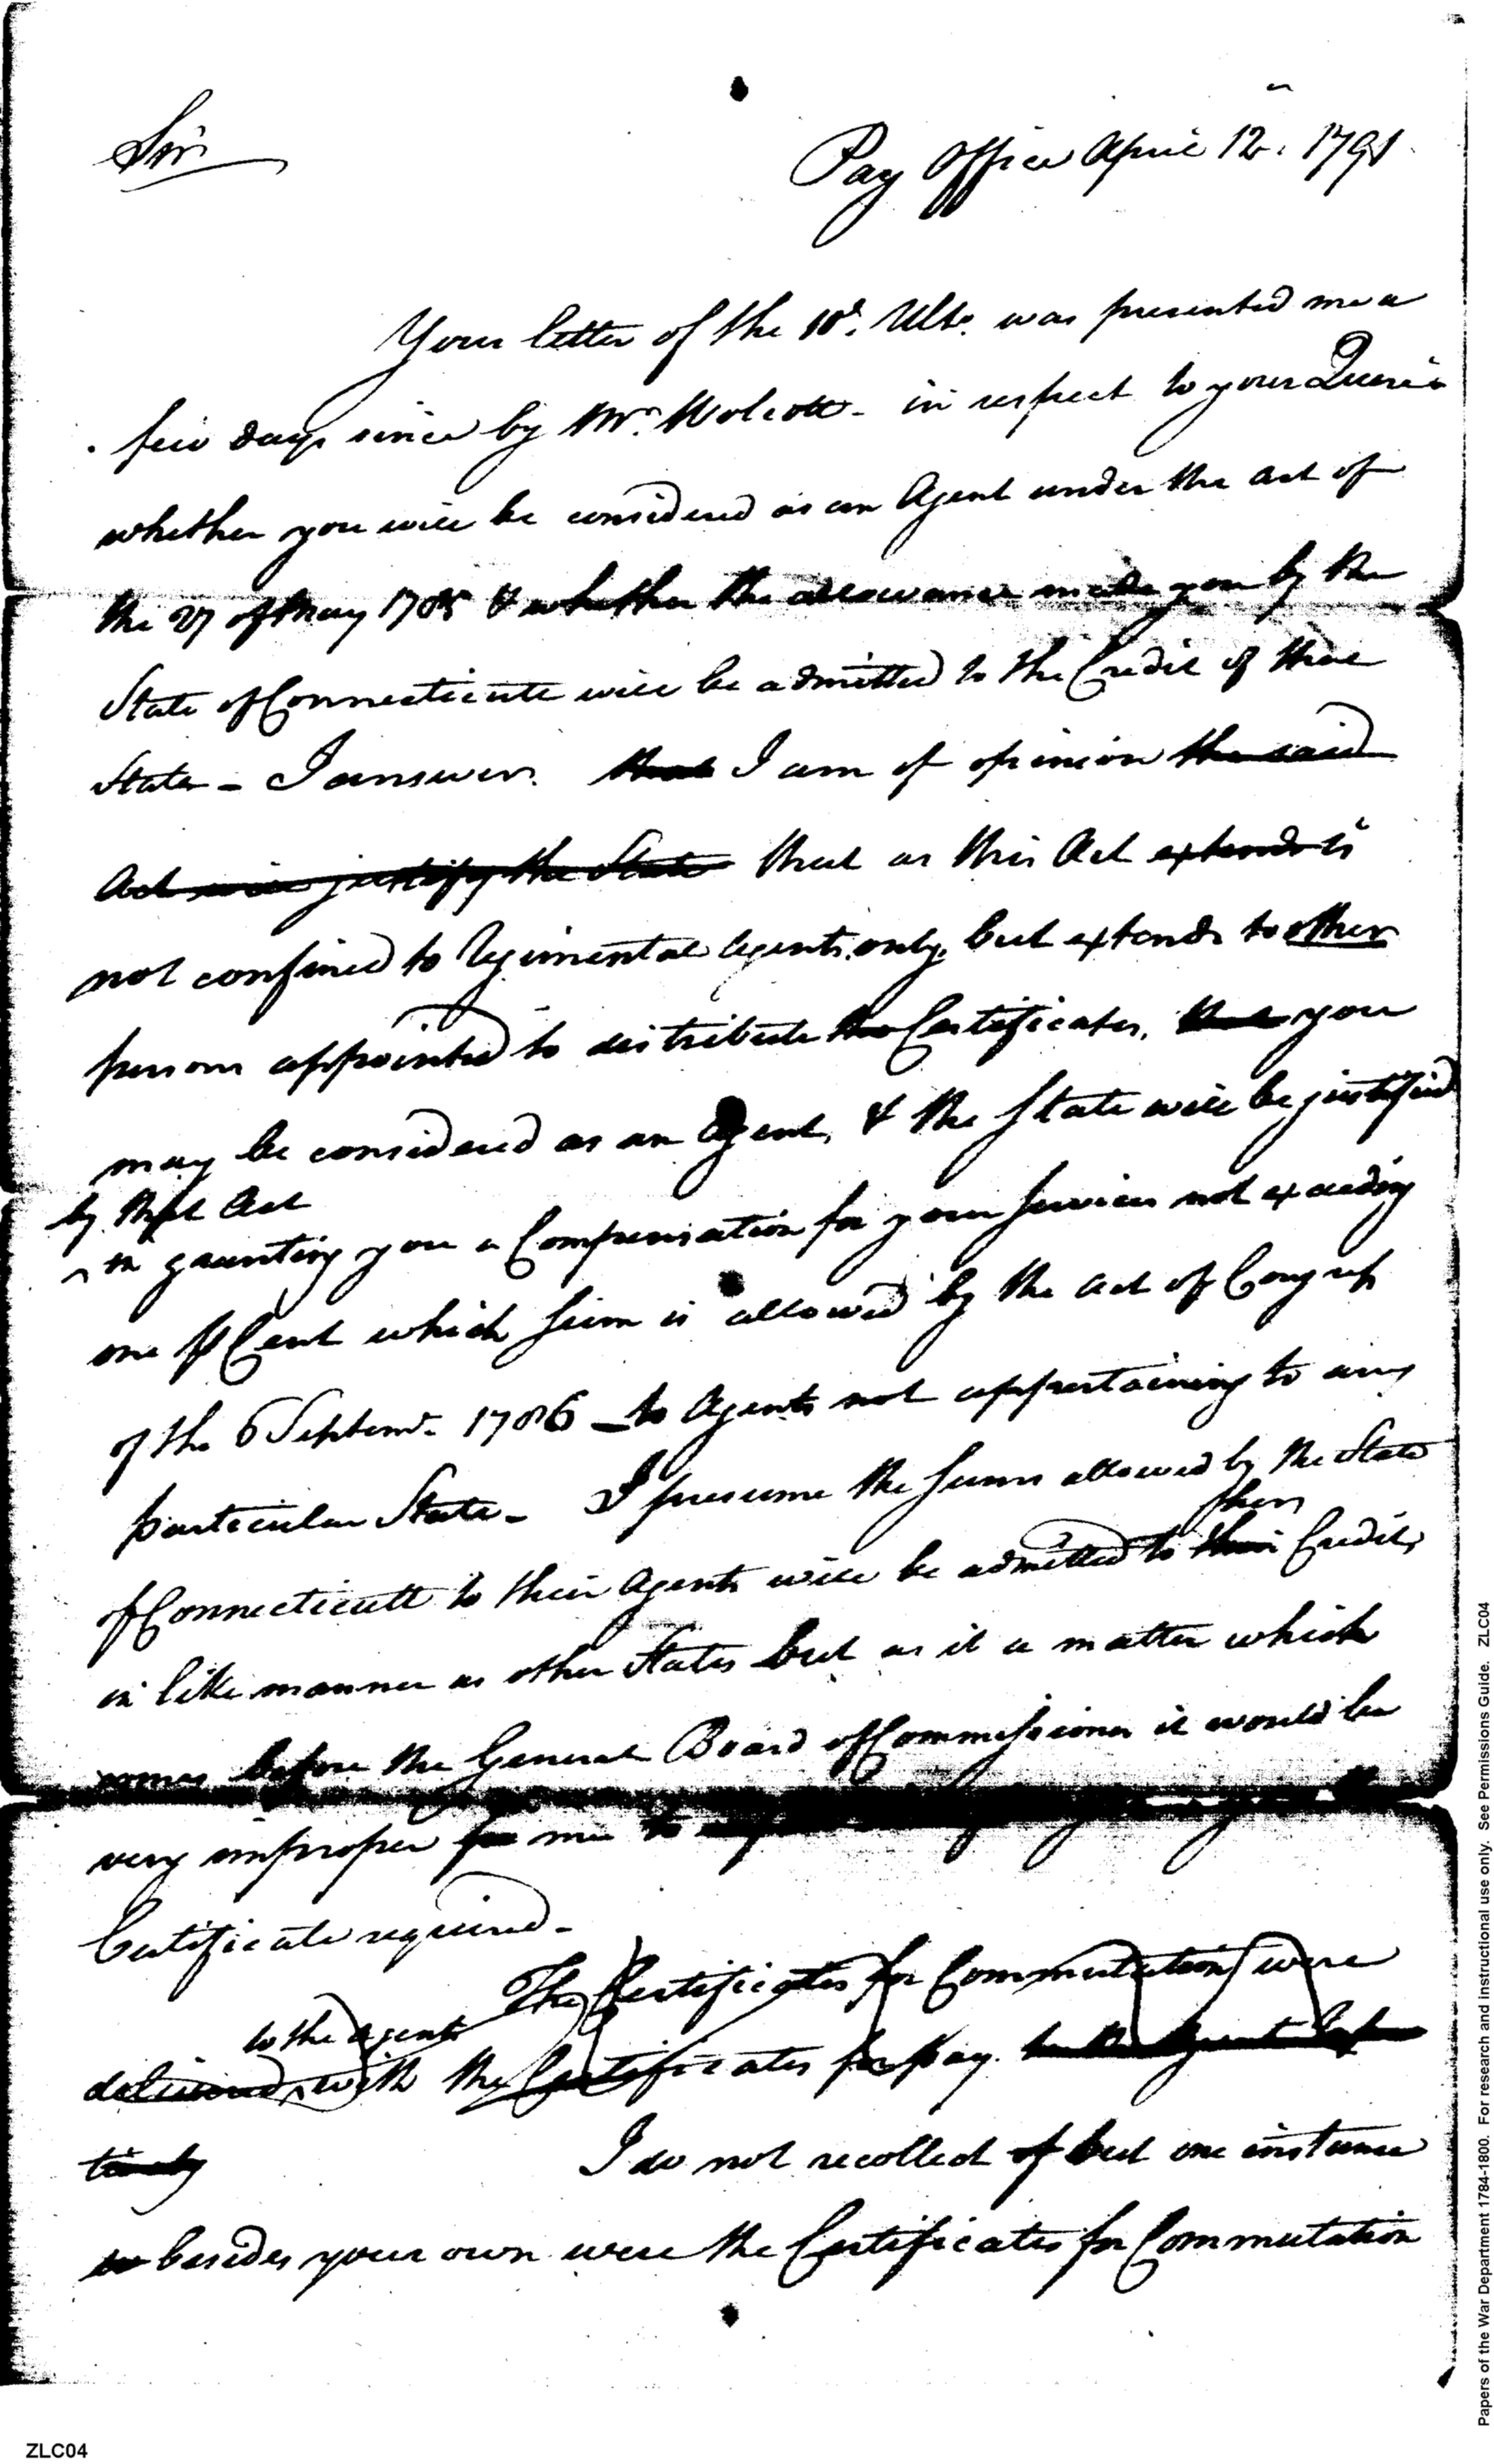 Sir
Pay Office April 12. 1791
Your letter of the 10d. Ulto. was presented me a
few days since by Mr. Wolcott - in respect to your Queries
whether you will be considered as an Agent under the act of
the 27 of May 1785 & whether the allowance made you by the
State of Connecticutt will be admitted to the Credit of that
State - I answer. that I am of opinion the said
Act will justify the State that as this Act extends is
not confined to Regimental Agents only, but extends to other
persons appointed to distribute the Certificates, that you
may be considered as an Agent, & the State will be justified
by that Act
in graunting you a Compensation for your Services not exceeding
one P Cent which sum is allowed by the act of Congress
of the 6 Septemr. 1786 - to Agents not appertaining to any
particular State - I presume the sums allowed by the State
their
of Connecticutt to their Agents will be admitted to Credit,
in like manner as other States but as it a matter which
comes before the General Board of Commissioners it would be
very improper for me to
Certificate required -
The Certificates for Commutation were
to the Agents
delivered with the Certificates for pay. to the Agent
I do not recollect of but one instance
besides your own were the Certificates for Commutation
Papers of the War Department 1784-1800. For research and instructional use only. See Permissions Guide. ZLC04
ZLC04